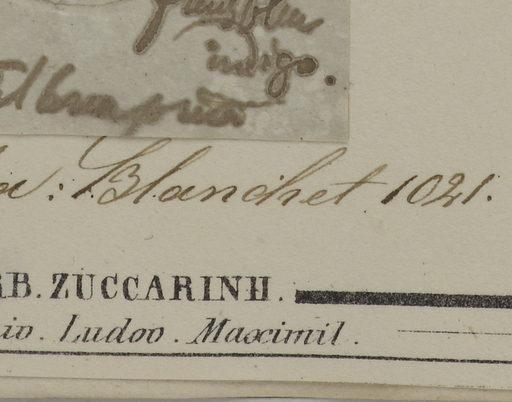 indigo.
a: Blanchet 1021.
RB. ZUCCARINII.
io. Ludov. Maximil.